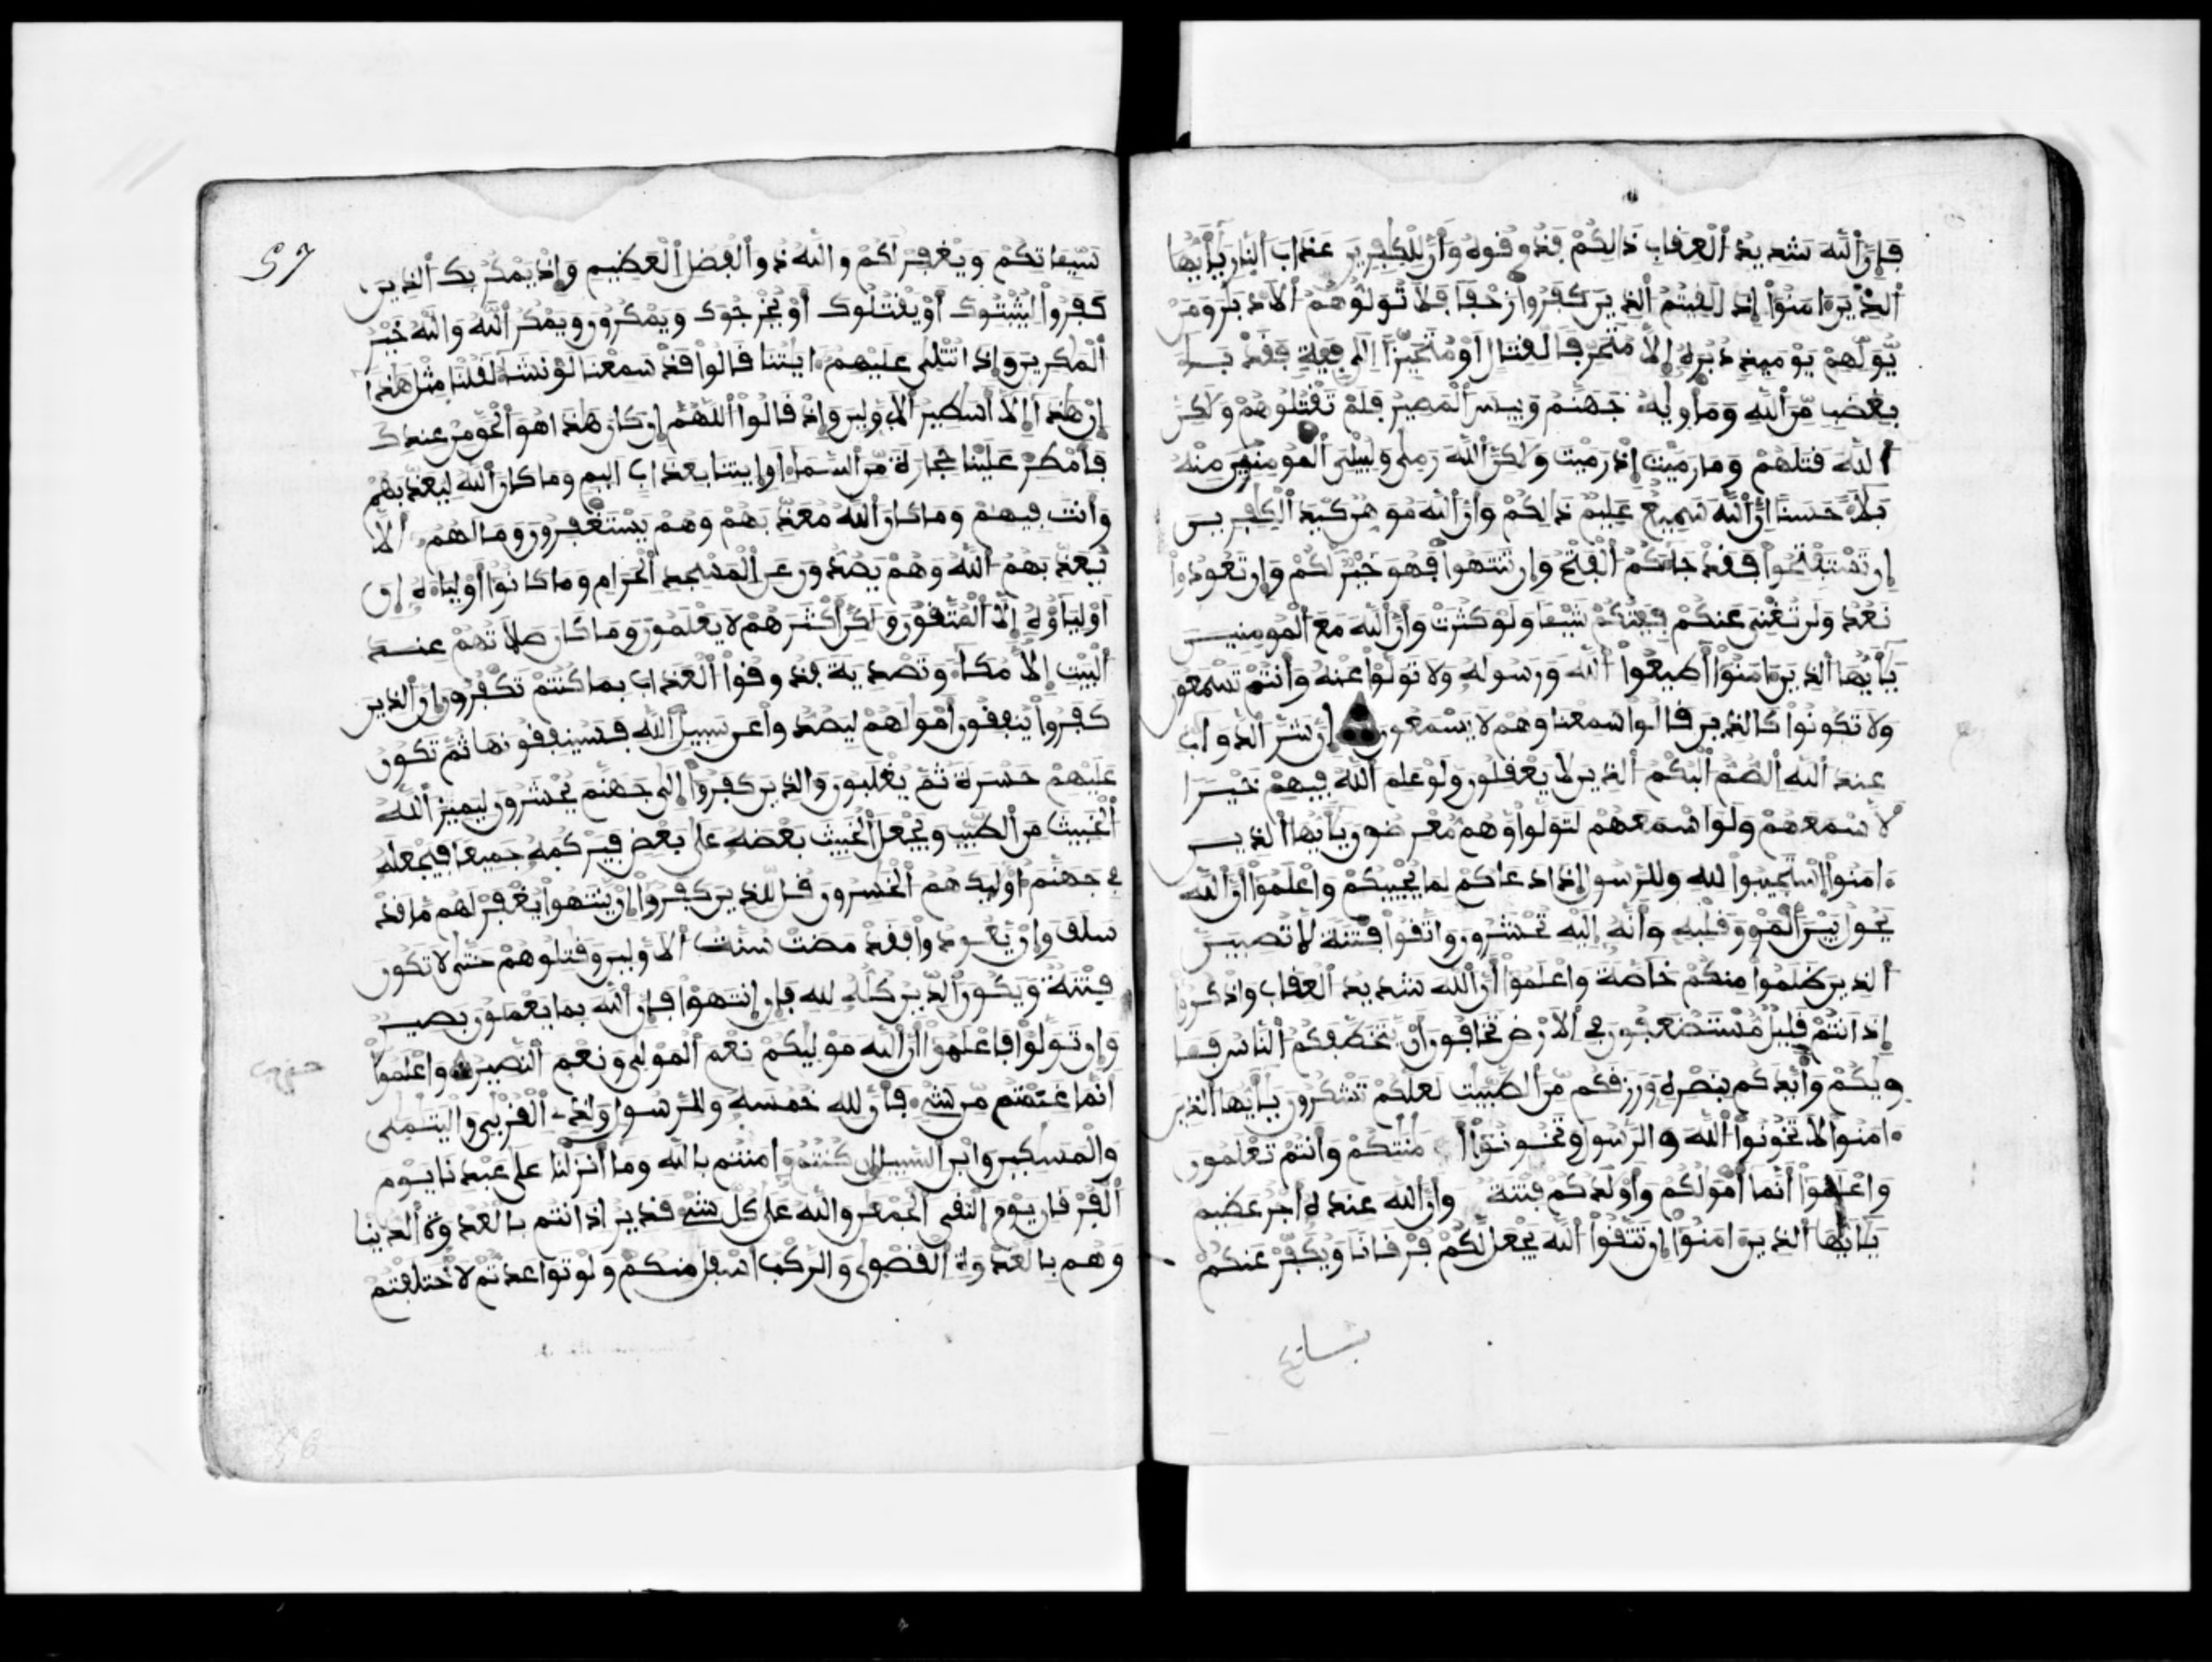 فإن الله شديد العقاب ذالكم فذوقوه وأن للكفرين عذاب النار يأيها
الذين ءامنوا إذا لقيتم الذين كفروا زحفا فلا تولوهم الادبار ومن
يولهم يوميذ دبره إلا متحرفا لقتال او متحيزا الى فية فقد باء
بغضب من الله ومأويه جهنم وبيس المصير فلم تقتلوهم ولاكن
الله قتلهم وما رميت إذ رميت ولاكن الله رمى وليبلى المومنين منه
بلاء حسنا ان الله سميع عليم ذالكم وأن الله موهن كيد الكفرين
إن تستفتحوا فقد جاءكم الفتح وإن تنتهوا فهو خير لكم وإن تعودوا
نعد ولن تغنى عنكم فيتكم شيـا ولو كثرت وأن الله مع المومنين
يأيها الذين ءامنوا أطيعوا الله ورسوله ولا تولوا عنه وأنتم تسمعون
ولا تكونوا كالذين قالوا سمعنا وهم لا يسمعون إن شر الدواب
عند الله الصم البكم الذين لا يعقلون ولو علم الله فيهم خيرا
لاسمعهم ولو اسمعهم لتولوا وهم معرضون يأيها الذين
ءامنوا استجيبوا لله وللرسول إذا دعاكم لما يحييكم واعلموا أن الله
يحول بين المرء وقلبه وأنه إليه تحشرون واتقوا فتنة لا تصيبن
الذين ظلموا منكم خاصة واعلموا أن الله شديد العقاب واذكروا
إذ انتم قليل مستضعفون في الارض تخافون أن يتخطفكم الناس فـا
ويكم وأيدكم بنصره ورزقكم من الطيبت لعلكم تشكرون يأيها الذين
ءامنوا لا تخونوا الله والرسول وتخونوا أمنتكم وأنتم تعلمون
واعلموا أنما أمولكم وأولدكم فتنة وأن الله عنده اجر عظيم
يأيها الذين ءامنوا إن تتقوا الله يجعل لكم فرقانا ويكفر عنكم
57
سيـاتكم ويغفر لكم والله ذو الفضل العظيم وإذ يمكر بك الذين
كفروا ليثبتوك أو يقتلوك أو يخرجوك ويمكرون ويمكر الله والله خير
المكرين وإذا تتلى عليهم ءايتنا قالوا قد سمعنا لو نشاء لقلنا مثل هذا
إن هذا إلا أسطير الاولين وإذ قالوا اللهم إن كان هذا هو الحق من عندك
فأمطر علينا حجارة من السماء او ايتنا بعذاب اليم وما كان الله ليعذبهم
وأنت فيهم وما كان الله معذبهم وهم يستغفرون وما لهم ألا
يعذبهم الله وهم يصدون عن المسجد الحرام وما كانوا أولياءه إن
أولياؤه إلا المتقون ولكن أكثرهم لا يعلمون وما كان صلاتهم عند
البيت إلا مكاء وتصدية فذوقوا العذاب بما كنتم تكفرون إن الذين
كفروا ينفقون أمولهم ليصدوا عن سبيل الله فسينفقونها ثم تكون
عليهم حسرة ثم يغلبون والذين كفروا إلى جهنم يحشرون ليميز الله
الخبيث من الطيب ويجعل الخبيث بعضه على بعض فيركمه جميعا فيجعله
في جهنم أوليك هم الخسرون قل للذين كفروا إن ينتهوا يغفر لهم ما قد
سلف وإن يعودوا فقد مضت سنت الاولين وقتلوهم حتى لا تكون
فتنة ويكون الدين كله لله فإن انتهوا فإن الله بما يعملون بصير
وإن تولوا فاعلموا أن الله موليكم نعم المولى ونعم النصير واعلموا
حزب
أنما غنمتم من شيء فأن لله خمسه وللرسول ولذى القربى واليتمى
والمسكين وابن السبيل إن كنتم ءامنتم بالله وما أنزلنا على عبدنا يوم
الفرقان يوم التقى الجمعن والله على كل شيء قدير إذ انتم بالعدوة الدنيا
وهم بالعدوة القصوى والركب أسفل منكم ولو تواعدتم لاختلفتم